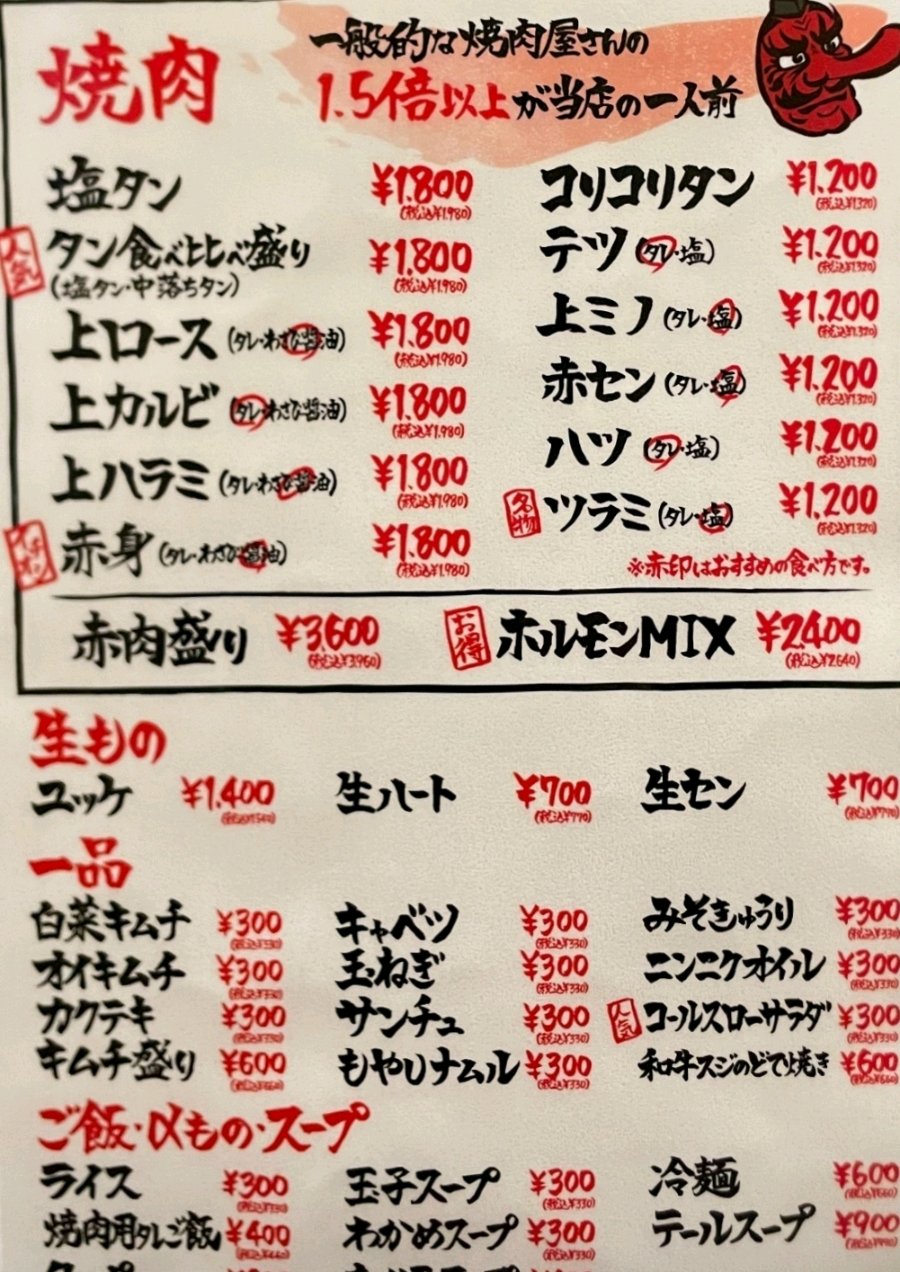 焼肉
一般的な焼肉屋さんの
1.5倍以上が当店の一人前
塩タン ¥1.800 (税込¥1.980)
人気 タン食べ比べ盛り ¥1.800 (税込¥1.980)
(塩タン・中落ちタン)
上ロース (タレ・わさび醤油) ¥1.800 (税込¥1.980)
上カルビ (タレ・わさび醤油) ¥1.800 (税込¥1.980)
上ハラミ (タレ・わさび醤油) ¥1.800 (税込¥1.980)
イチオシ 赤身 (タレ・わさび醤油) ¥1.800 (税込¥1.980)
コリコリタン ¥1.200 (税込¥1.320)
テツ (タレ・塩) ¥1.200 (税込¥1.320)
上ミノ (タレ・塩) ¥1.200 (税込¥1.320)
赤セン (タレ・塩) ¥1.200 (税込¥1.320)
ハツ (タレ・塩) ¥1.200 (税込¥1.320)
名物 ツラミ (タレ・塩) ¥1.200 (税込¥1.320)
※赤印はおすすめの食べ方です。
赤肉盛り ¥3.600 (税込¥3.960)
お得 ホルモンMIX ¥2.400 (税込¥2.640)
生もの
ユッケ ¥1.400 (税込¥1.540)
生ハート ¥700 (税込¥770)
生セン ¥700 (税込¥770)
一品
白菜キムチ ¥300 (税込¥330)
オイキムチ ¥300 (税込¥330)
カクテキ ¥300 (税込¥330)
キムチ盛り ¥600 (税込¥660)
キャベツ ¥300 (税込¥330)
玉ねぎ ¥300 (税込¥330)
サンチュ ¥300 (税込¥330)
もやしナムル ¥300 (税込¥330)
みそきゅうり ¥300 (税込¥330)
ニンニクオイル ¥300 (税込¥330)
人気 コールスローサラダ ¥300 (税込¥330)
和牛スジのどて焼き ¥600 (税込¥660)
ご飯・〆もの・スープ
ライス ¥300 (税込¥330)
焼肉用タレご飯 ¥400 (税込¥440)
玉子スープ ¥300 (税込¥330)
わかめスープ ¥300 (税込¥330)
冷麺 ¥600 (税込¥660)
テールスープ ¥900 (税込¥990)